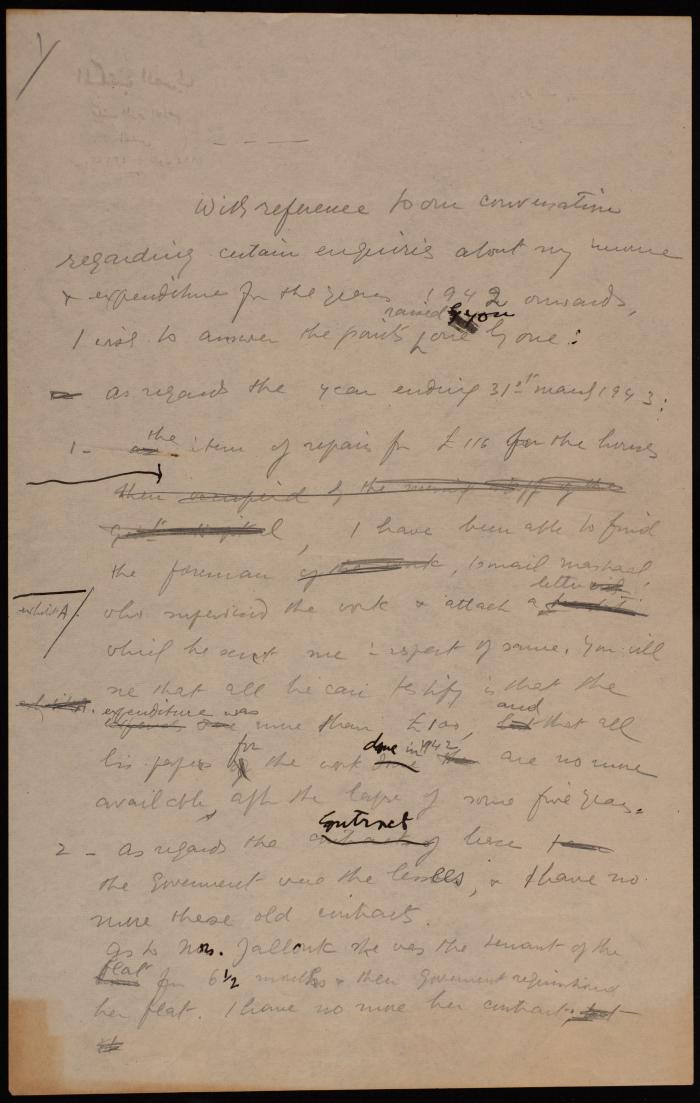 1/
With reference to our conversation
regarding certain enquiries about my income
& expenditure for the years 1942 onwards,
raised by you
I wish to answer the points one by one :
as regards the year ending 31st March 1943 :
1 - the item of repairs for £116 for the houses
then occupied by the nursing staff of the
, I have been able to find
the foreman of the work, Ismail
letter
exhibit A / who supervised the work & attach a
which he sent me in respect of same. You will
see that all he can testify is that the
expenditure was and
more than £100, but that all
for done in 1942
his papers the work are no more
available, after the lapse of some five years.
contract
2 - As regards the contract of lease
the Government were the lessees, & I have no
more these old contracts.
As to Mrs. Jallouk she was the tenant of the
flat for 6 1/2 months & then Government requisitioned
her flat. I have no more her contract, but